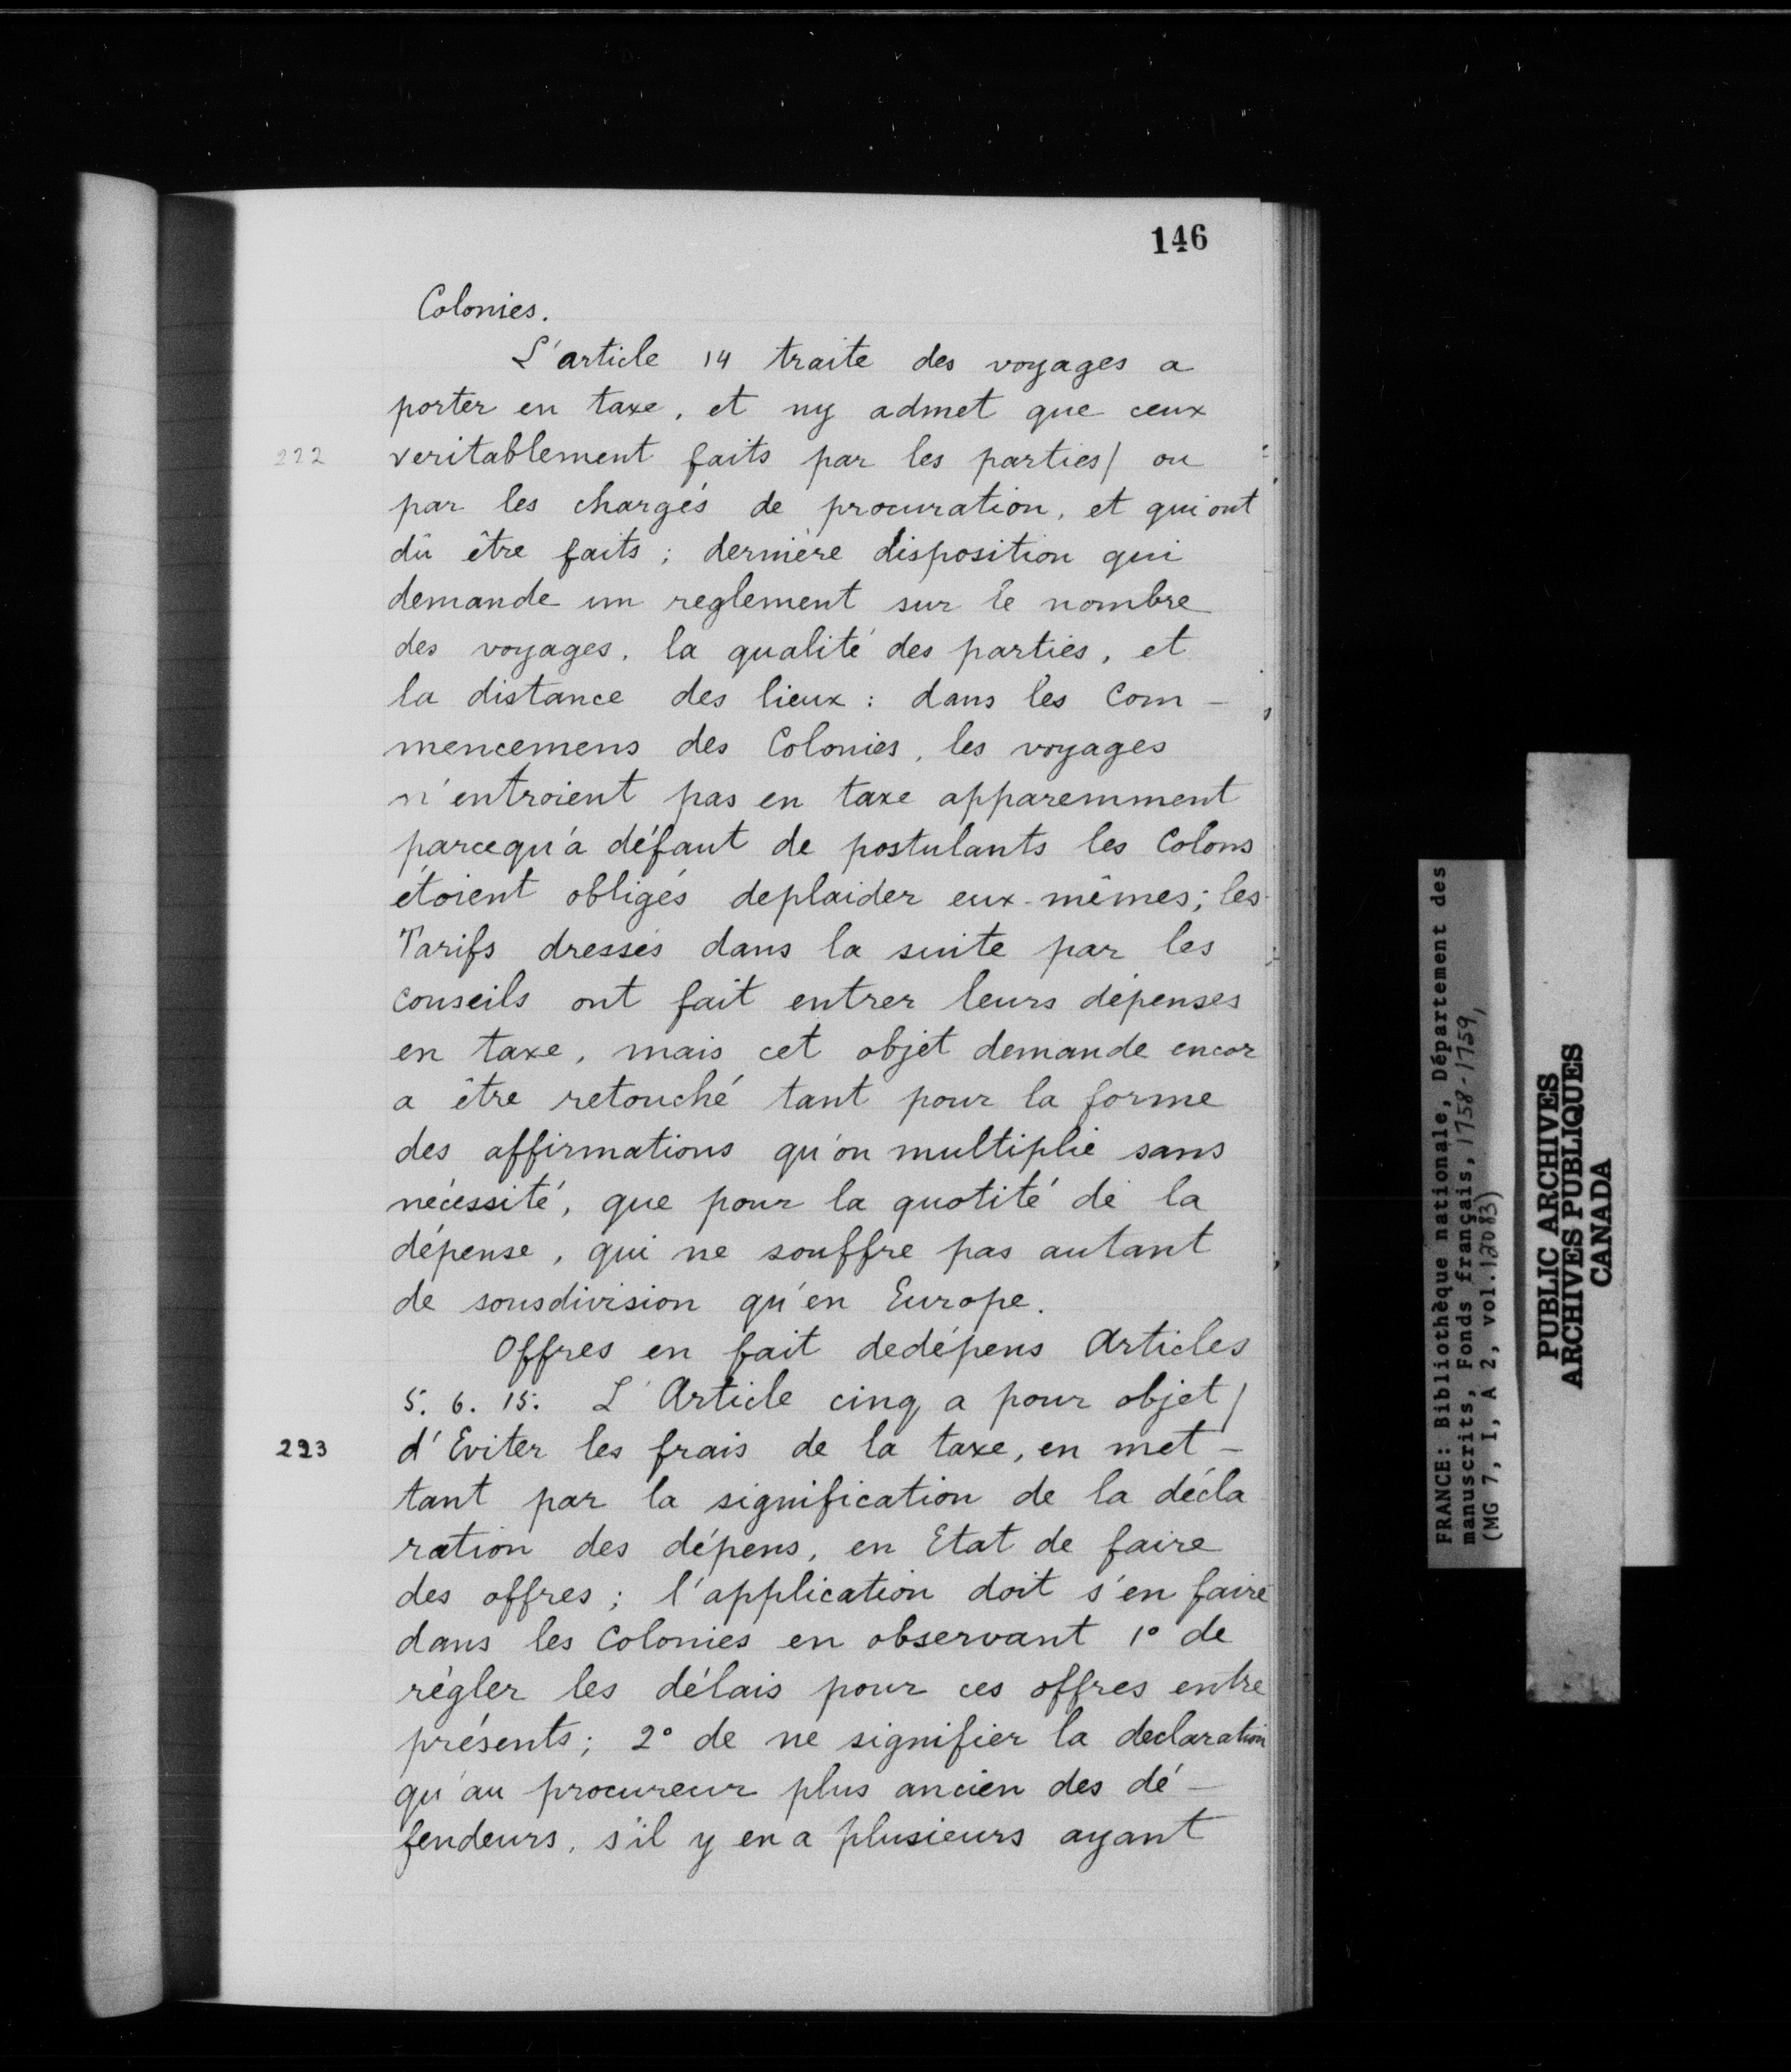 146
Colonies.
L'article 14 traite des voyages a
porter en taxe, et ny admet que ceux
222 veritablement faits par les parties/ ou
par les chargés de procuration, et qui ont
dû être faits; dernière disposition qui
demande un reglement sur le nombre
des voyages, la qualité des parties, et
la distance des lieux: dans les Com-
mencemens des Colonies, les voyages
n'entroient pas en taxe apparemment
parcequ'à défaut de postulants les Colons
étoient obligés deplaider eux-mêmes; les
Tarifs dressés dans la suite par les
conseils ont fait entrer leurs dépenses
en taxe, mais cet objet demande encor
a être retouché tant pour la forme
des affirmations qu'on multiplie sans
nécessité, que pour la quotité de la
dépense, qui ne souffre pas autant
de sousdivision qu'en Europe.
Offres en fait dedépens Articles
5. 6. 15. L'Article cinq a pour objet/
223 d'Eviter les frais de la taxe, en met-
tant par la signification de la décla
ration des dépens, en Etat de faire
des offres; l'application doit s'en faire
dans les Colonies en observant 1° de
régler les délais pour ces offres entre
présents; 2° de ne signifier la declaration
qu'au procureur plus ancien des dé-
fendeurs, s'il y en a plusieurs ayant
FRANCE: Bibliothèque nationale, Département des
manuscrits, Fonds français, 1758-1759,
(MG 7, I, A 2, vol. 12083)
PUBLIC ARCHIVES
ARCHIVES PUBLIQUES
CANADA